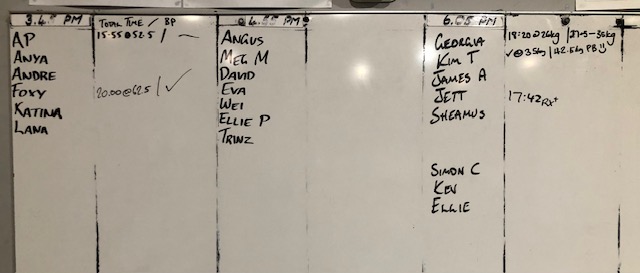 3.45 PM
TOTAL TIME / BP
AP 15:55@52.5 / —
ANYA
ANDRE
FOXY 20:00@62.5 / ✓
KATINA
LANA
4.55 PM
ANGUS
MEG M
DAVID
EVA
WEI
ELLIE P
TRINZ
6.05 PM
GEORGIA 18:20@26kg / 27.5-36kg
KIM T ✓@35kg / 42.5kg PB
JAMES A
JETT 17:42 RX+
SHEAMUS
SIMON C
KEV
ELLIE